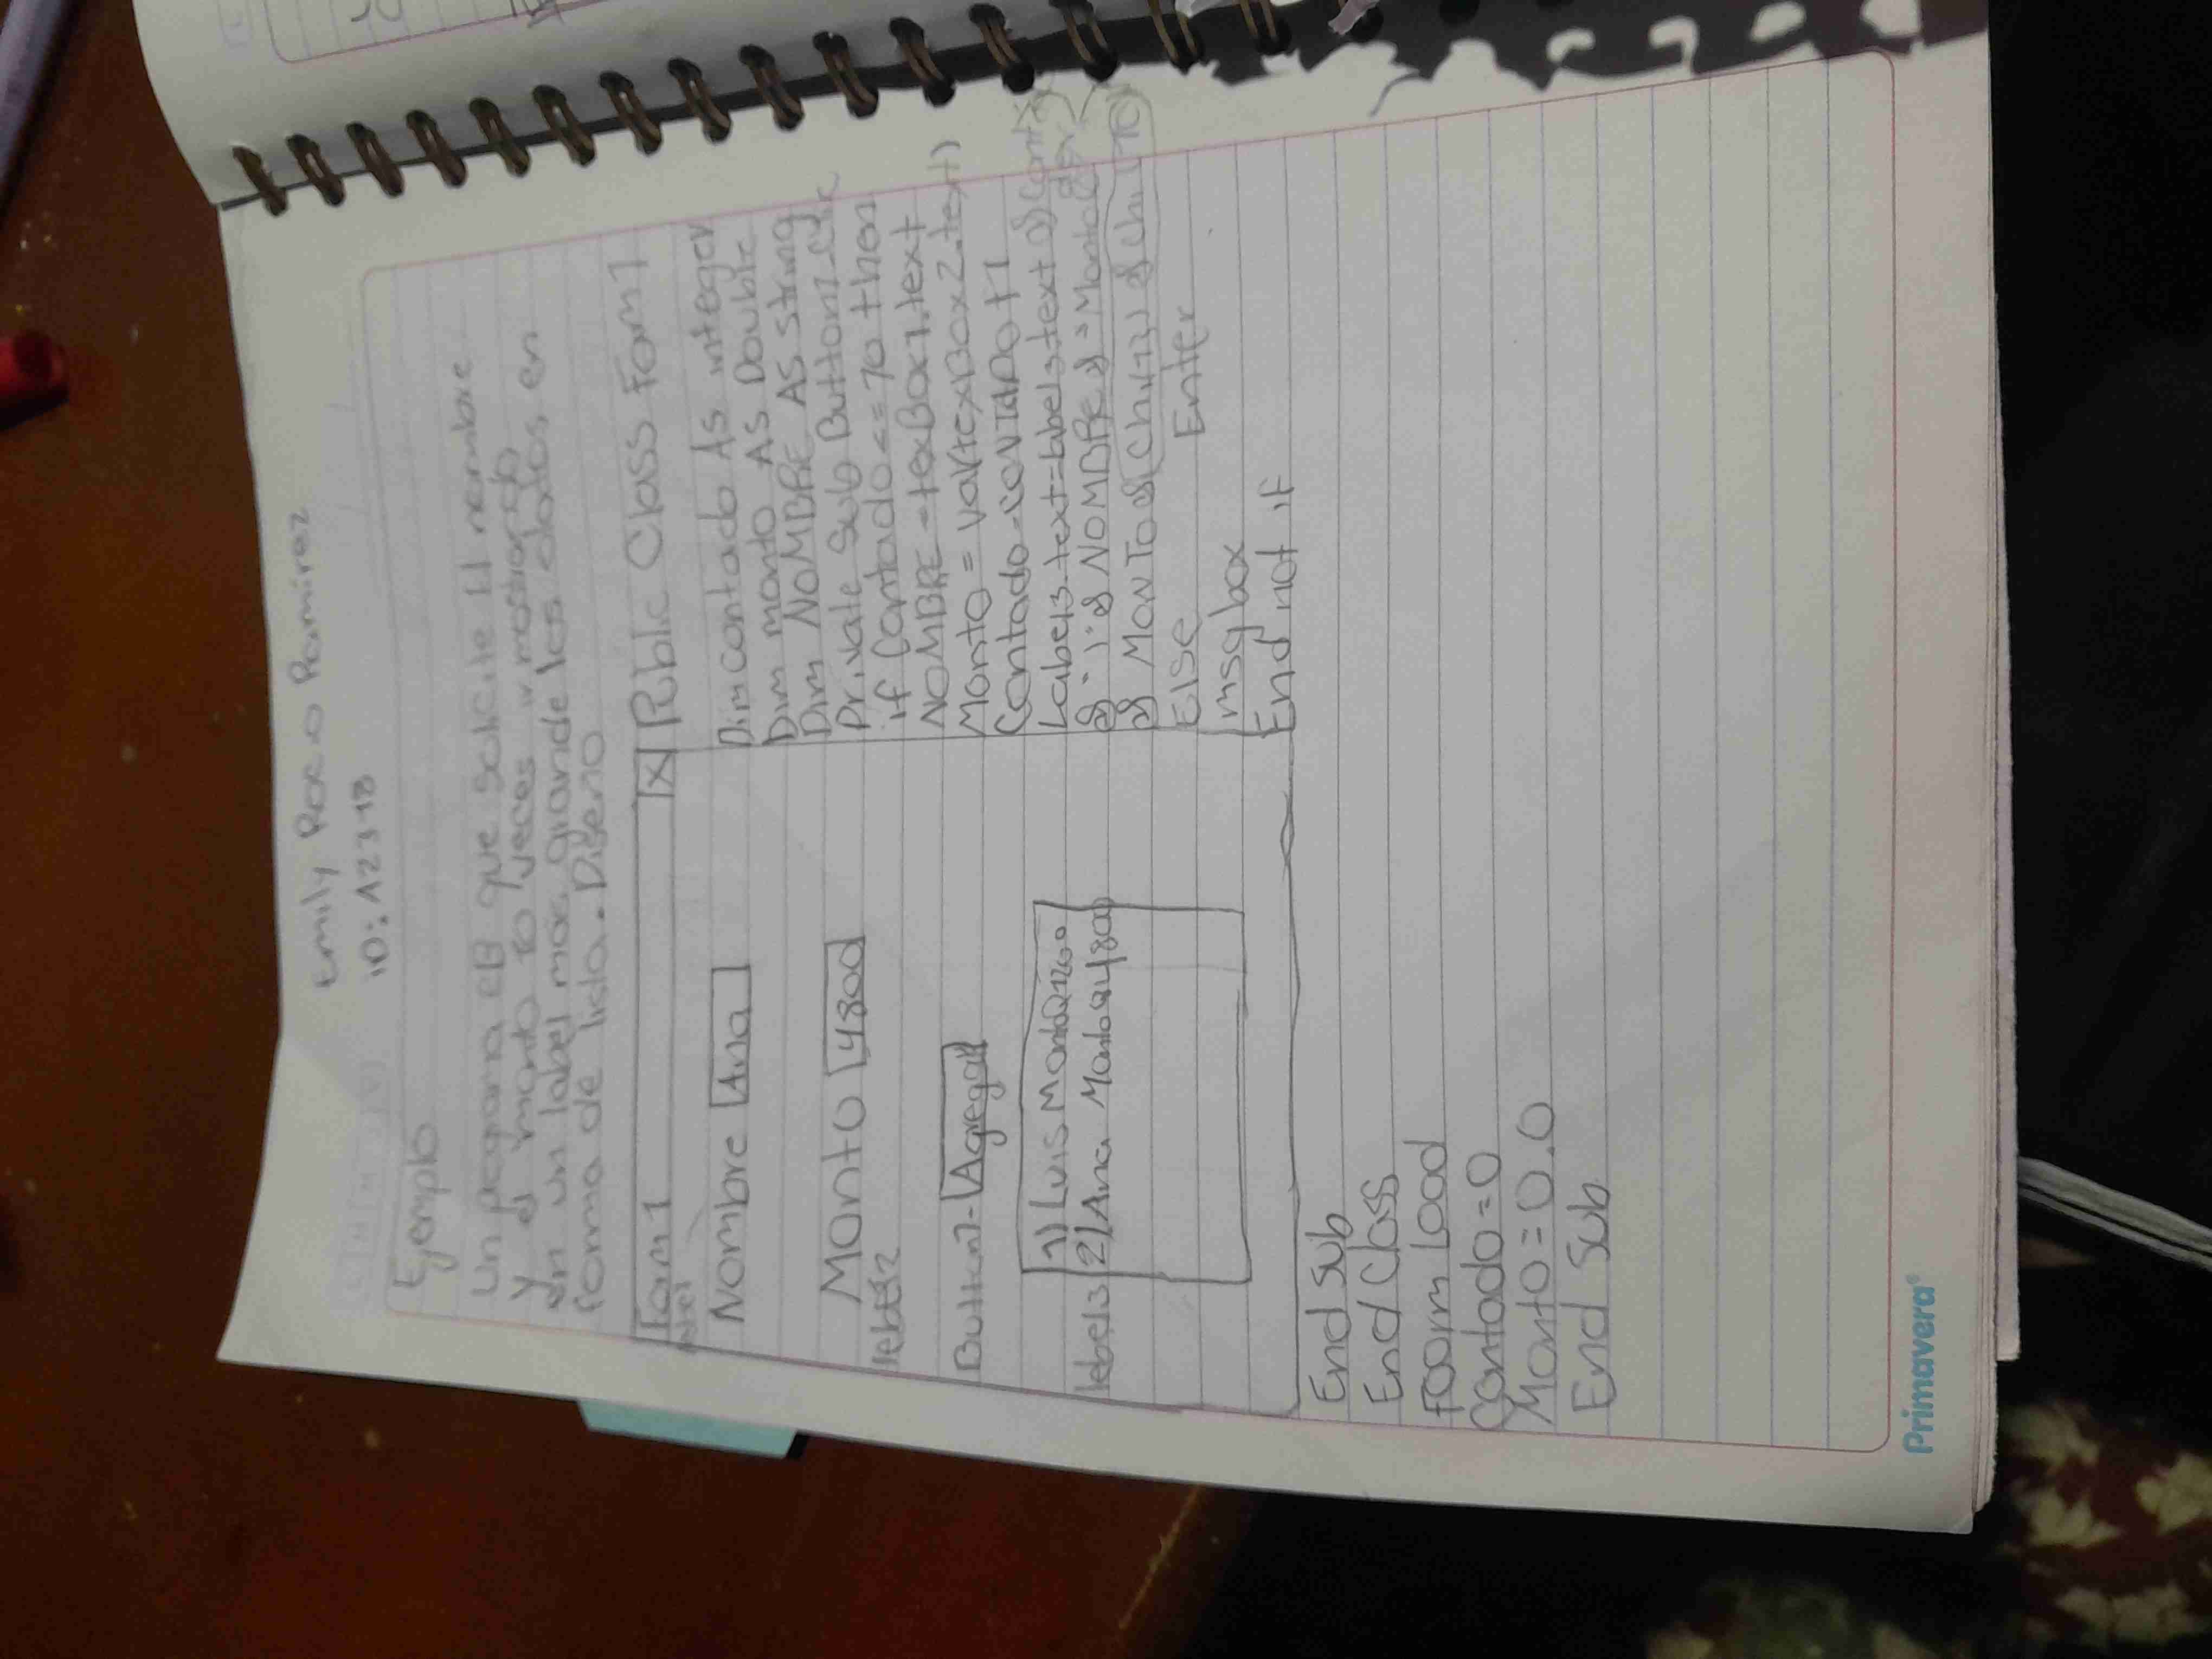 Emily Roxo Ramirez
ID: A2348
Ejemplo
Un programa EB que solicite El nombre
y el monto 10 veces y mostrando
en un label mas grande los datos en
forma de lista. Diseño
Form1 X
Nombre Ana
Monto 4800
label2
Button1- Agregar
1) Luis Monto
label3 2) Ana Monto Q4800
Publc Class Form1
Dim contado As integer
Dim monto AS Double
Dim NOMBRE AS string
Private Sub Button1-click
if Contado <= 10 then
NOMBRE = texBox1.text
Monto = val(texBox2.text)
Contado = CONTADO +1
Label3.text=label3.text &
& NOMBRE & "Monto
& MONTO & Chr(12) &
Else Enter
msgbox
End not if
End sub
End Class
Foorm load
Contado=0
Monto=0.0
End sub
Primavera